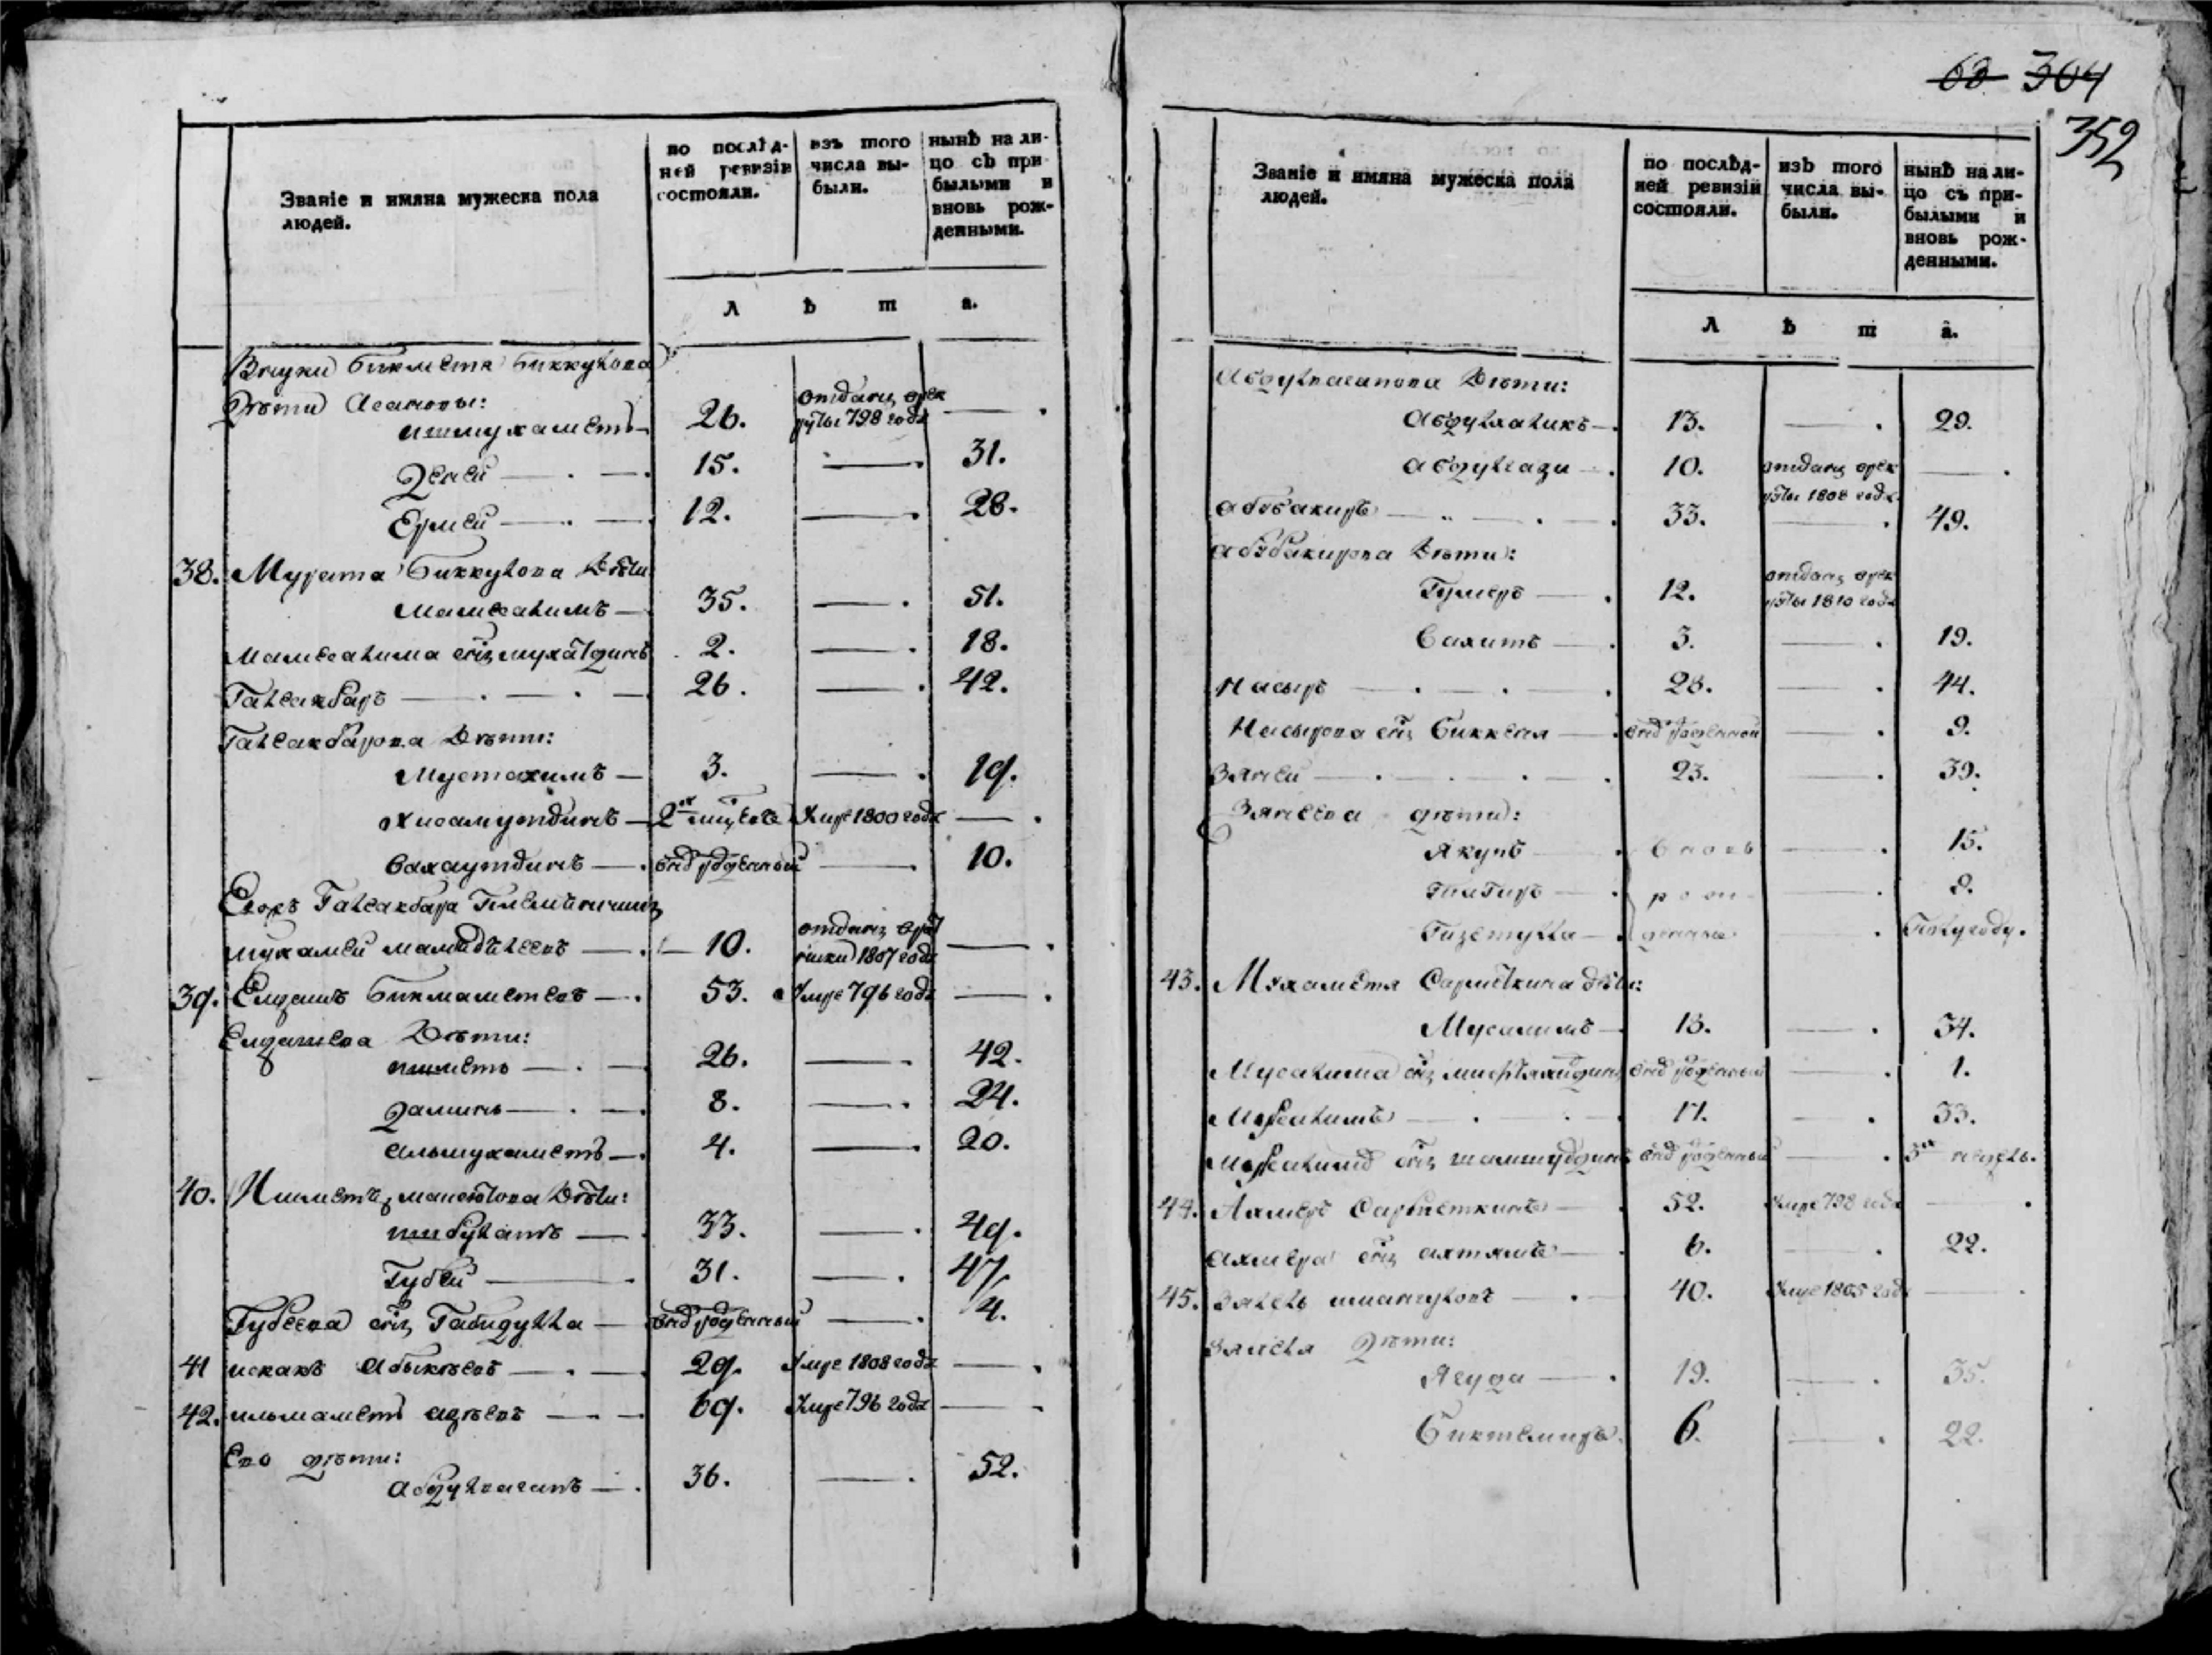 Званіе и имяна мужеска пола
людей.
по послѣд-
ней ревизіи
состояли.
изъ того
числа вы-
были.
нынѣ на ли-
цо съ при
былыми и
вновь рож-
денными.
Л ѣ т а.
Внуки Бикметя Биккулова
Дѣти Асановы:
ишмухаметъ 26. отданъ врек
руты 798 года —
Деней 15. — 31.
Ермей 12. — 28.
38. Мурата Биккулова Дѣти
Мамсалимъ 35. — 51.
Мамсалима сынъ мухатдинъ 2. — 18.
Галеакбаръ 26. — 42.
Галеакбарова Дѣти:
Мустахимъ 3. — 19.
Хисамутдинъ 2хъ Умре 1800 года —
Бахаутдинъ внов рожденный — 10.
Галеакбара
10. отданъ
1807 года —
39. Елдашъ Бикмаметевъ 53. Умре 796 года —
Елдашева Дѣти:
ишметь 26. — 42.
Даминь 8. — 24.
альмухаметъ 4. — 20.
40. Дѣти:
ишбулатъ 33. — 49.
Губей 31. — 47.
Губеева сынъ Габидулла внов рожденный — 4.
41 искакъ Абыкѣевъ 29. Умре 1808 года —
42. ильмаметъ 69. Умре 796 года —
Ево дѣти:
Абдулвагапъ 36. — 52.
63 304
352
Званіе и имяна мужеска пола
людей.
по послѣд-
ней ревизіи
состояли.
изъ того
числа вы-
были.
нынѣ на ли-
цо съ при-
былыми и
вновь рож-
денными.
Л ѣ т а.
Абдулвагапова Дѣти:
Абдулхаликъ 13. — 29.
Абдулгази 10. отданъ врек
руты 1808 года —
Абубакиръ 33. — 49.
Абубакирова Дѣти:
Гумеръ 12. отданъ врек
руты 1810 года
Вахитъ 3. — 19.
Насыръ 28. — 44.
Насырова сынъ Биккеня внов рожденной — 9.
Зяней 23. — 39.
Зянеева дѣти:
Якупъ вновь — 15.
рож- — 8.
Гизетулла денные — Полугоду.
43. Мухаметя дѣти:
Мусалимъ 18. — 34.
Мусалима сынъ внов рожденный — 1.
17. — 33.
сынъ шамшутдинъ внов рожденный — 3хъ недель.
44. Ахмеръ 52. Умре 798 года —
Ахмера сынъ ахтямъ 6. — 22.
45. 40. Умре 1805 года —
дѣти:
Ягуда 19. — 35.
Биктемиръ 6. — 22.